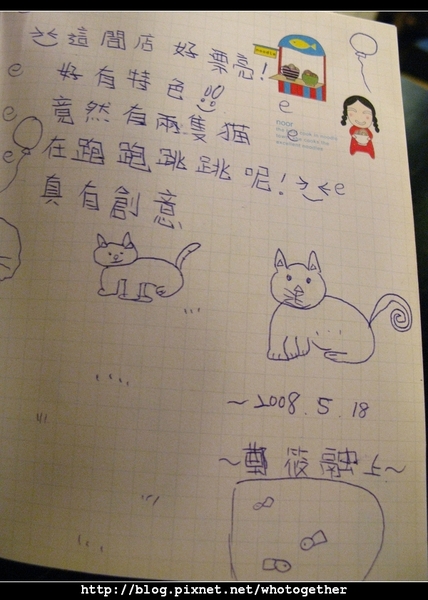 這間店好漂亮!
好有特色
竟然有兩隻貓
在跑跑跳跳呢!
真有創意
~2008.5.18
~鄭筱融上~
http://blog.pixnet.net/whotogether